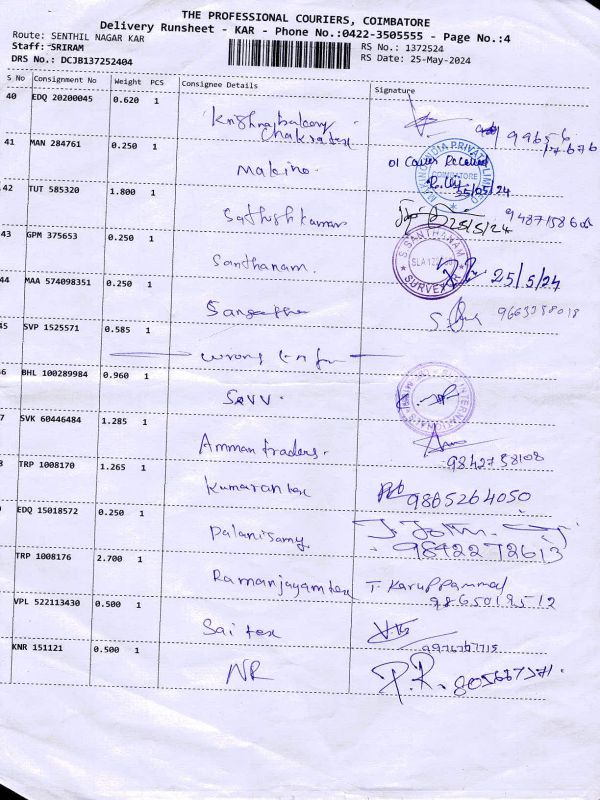 THE PROFESSIONAL COURIERS, COIMBATORE
Delivery Runsheet - KAR - Phone No.:0422-3505555 - Page No.:4
Route: SENTHIL NAGAR KAR
RS No.: 1372524
Staff: SRIRAM
RS Date: 25-May-2024
DRS No.: DCJB137252404
S No Consignment No Weight PCS Consignee Details Signature
40 EDQ 20200045 0.620 1
41 MAN 284761 0.250 1 Makino.
01 Cover Received
COIMBATORE
42 TUT 585320 1.800 1 Sathishkumar
25/5/24
43 GPM 375653 0.250 1 Santhanam.
S SANTHANAM
SURVEYOR
25/5/24
44 MAA 574098351 0.250 1 Sangeetha
45 SVP 1525571 0.585 1 wrong
46 BHL 100289984 0.960 1 SAVV.
7 SVK 60446484 1.285 1 Amman traders.
9842738108
8 TRP 1008170 1.265 1 Kumaran tex
9865264050
EDQ 15018572 0.250 1 Palanisamy
9842272613
TRP 1008176 2.700 1 Ramanjayam tex T. Karuppammal
9865019512
VPL 522113430 0.500 1 Sai tex
KNR 151121 0.500 1 NR
P.R.